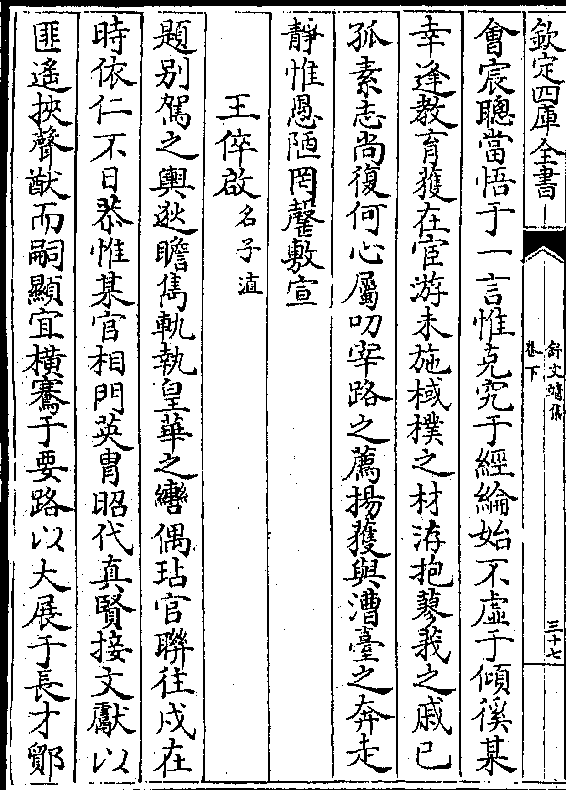 欽定四庫全書
舒文靖集
卷下
三十七
會宸聰當悟于一言惟克究于經綸始不虛于傾徯某
幸逢教育獲在宦游未施棫樸之材洊抱蓼莪之戚已
孤素志尚復何心屬叨宰路之薦揚獲與漕臺之奔走
静惟愚陋罔罄敷宣
王倅啟名子滇
題别駕之輿逖瞻雋軌執皇華之轡偶玷官聯往戍在
時依仁不日恭惟某官相門英胄昭代真賢接文獻以
匪遙挾聲猷而嗣顯宜橫騫于要路以大展于長才鄮